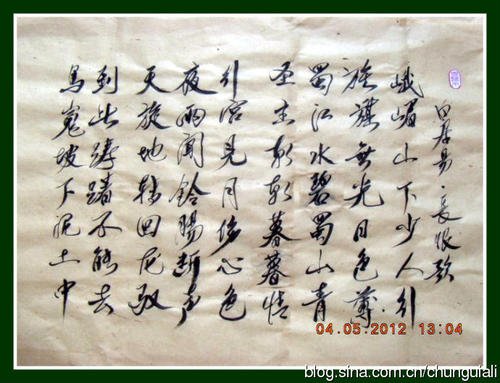 白居易·長恨歌
峨嵋山下少人行
旌旗無光日色薄
蜀江水碧蜀山青
圣主朝朝暮暮情
行宮見月傷心色
夜雨聞鈴腸斷声
天旋地转回龙驭
到此躊躇不能去
馬嵬坡下泥土中
04.05.2012 13:04
blog.sina.com.cn/chungufali